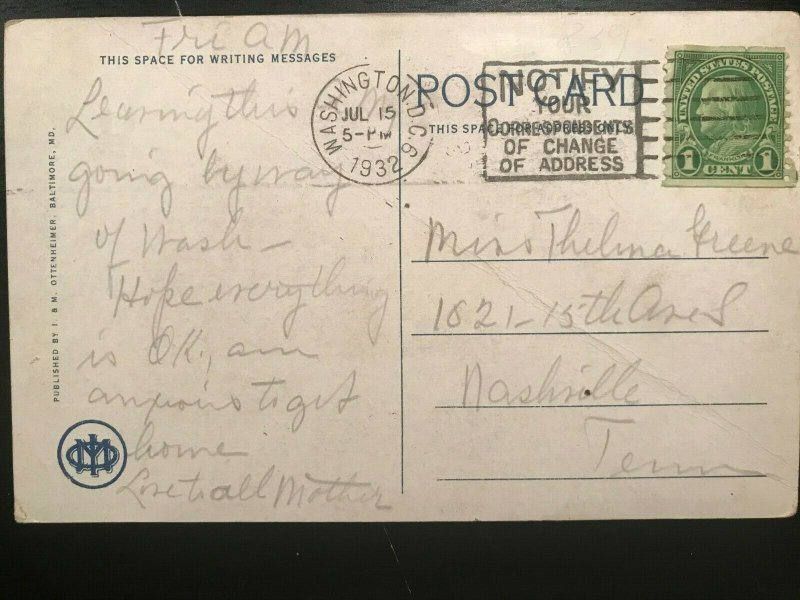 Fri AM
THIS SPACE FOR WRITING MESSAGES
Leaving this
going by way
of Wash —
Hope everything
is OK., am
anxious to get
home
Love to all Mother
PUBLISHED BY I. & M. OTTENHEIMER, BALTIMORE, MD.
WASHINGTON, D.C. 6
JUL 15
5-PM
1932
POST CARD
THIS SPACE FOR ADDRESS ONLY
NOTIFY
YOUR
CORRESPONDENTS
OF CHANGE
OF ADDRESS
UNITED STATES POSTAGE
FRANKLIN
1 CENT 1
Miss Thelma Greene
1821-15th Ave S
Nashville
Tenn